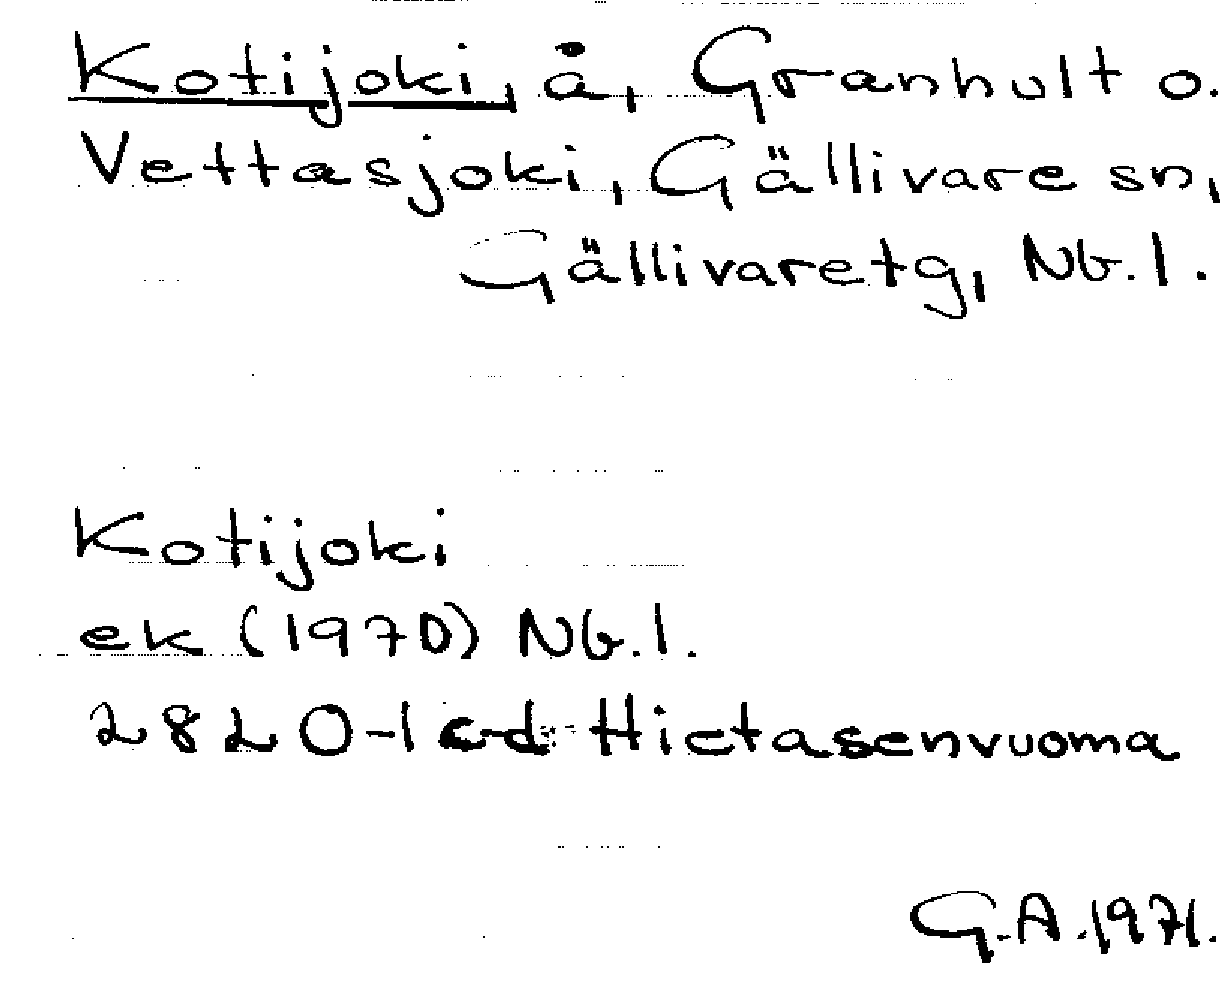 Kotijoki, å, Granhult o.
Vettasjoki, Gällivare sn,
Gällivaretg, Nb. l.
Kotijoki
ek (1970) Nb. l.
2820-1 c-d Hietasenvuoma
G.A. 1971.